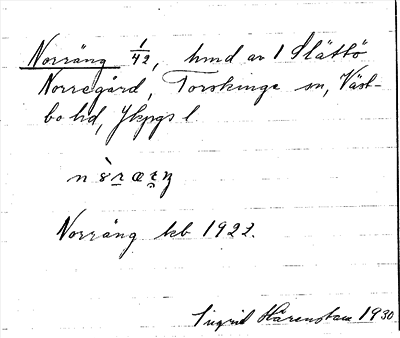 Norräng 1/42, hmd av 1 Slättö
Norregård, Torskinge sn, Väst-
bo hd, Jkpgs l.
Norräng kb 1927.
Ingrid Härenstam 1930